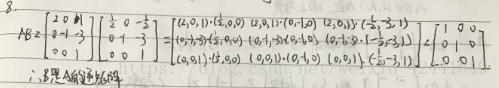 8.
AB = [2 0 1; 0 -1 -3; 0 0 1] [1/2 0 -1/2; 0 -1 -3; 0 0 1] = [(2,0,1)·(1/2,0,0) (2,0,1)·(0,-1,0) (2,0,1)·(-1/2,-3,1); (0,-1,-3)(1/2,0,0) (0,-1,-3)(0,-1,0) (0,-1,-3)·[-1/2,-3,1); (0,0,1)·(1/2,0,0) (0,0,1)·(0,-1,0) (0,0,1)·(-1/2,-3,1)] = [1 0 0; 0 1 0; 0 0 1]
∴B是A的逆矩阵